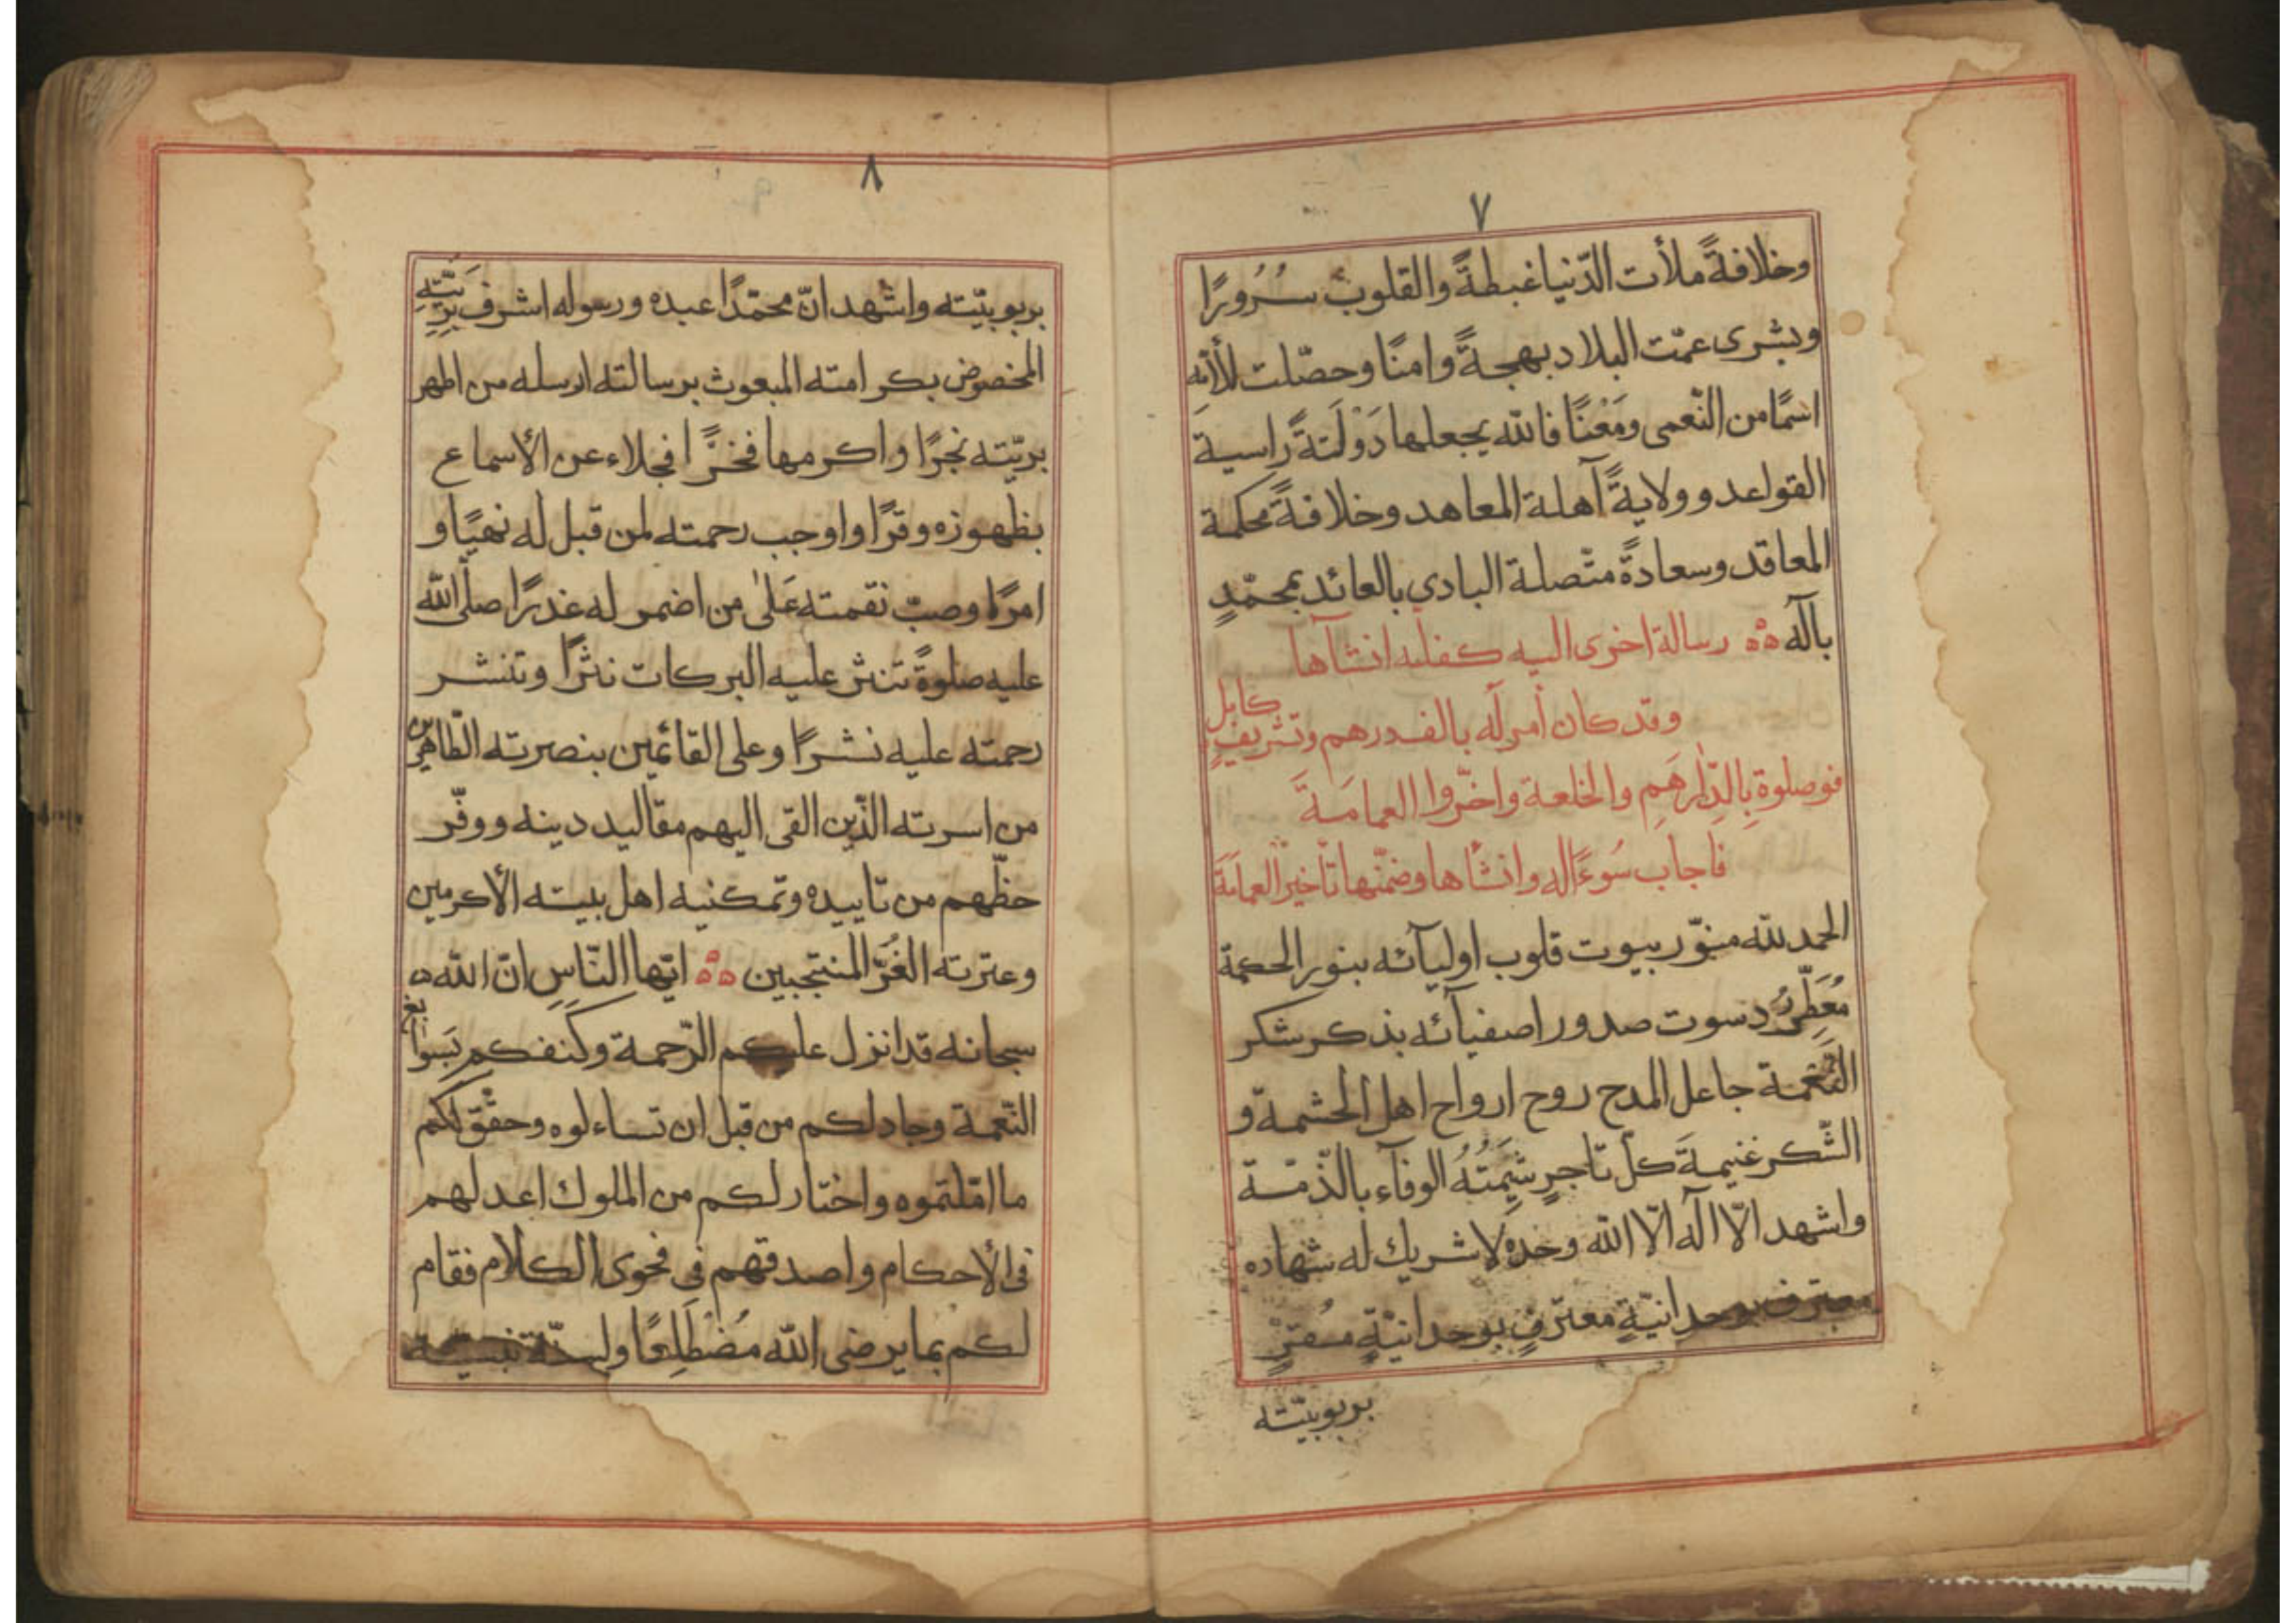 ٧
وخلافةً ملأت الدّنيا غبطةً والقلوب سُرُورًا
وبشرى عمّت البلاد بهجةً وامنًا وحصّلت للأمّة
اسمًا من النّعمى ومَعْنًا فالله يجعلها دَوْلَتةً راسيةَ
القواعد وولايةً آهلة المعاهد وخلافةً محكمة
المعاقد وسعادةً متّصلة البادى بالعائد بمحمّدٍ
بآله ۵۵ رسالة اخرى اليه كفله انشآها
وقد كان أمر له بالف درهم وتشريفٍ كابل
فوصلوة بِالدّارهَمِ والخلعة واخّروا العمامَةَ
فاجاب سُوءَاله وانشاها وضمّنها تأخيرَ العمامَةَ
الحمد لله منوّر بيوت قلوب اوليآئه بنور الحكمة
مُعَطِّرُ دسوت صدور اصفيآئه بذكر شكر
النّعمة جاعل المدح روح ارواح اهل الحشمة و
الشّكر غنيمةَ كلّ تاجرٍ شِيَمتُهُ الوفآء بالذّمّة
واشهد الّا اله الّا الله وحده لا شريك له شهاده
معترف بوحدانيّةٍ معترفٍ بوحدانيّةٍ مقرٍّ
بربوبيّته
٨
بربوبيّته واشهد انّ محمّدًا عبده ورسوله اشرف بَرِيّتِهِ
المخصوص بكرامته المبعوث برسالته ارسله من اطهر
بريّته نجرًا واكرمها فخرًا فجلاء عن الأسماع
بظهوره وقرًا واوجب رحمته لمن قبل له نهيًا و
امرًا وصبّ نقمته عَلىٰ من اضمر له غدرًا صلّى الله
عليه صلوةً تنثر عليه البركات نثرًا وتنشر
رحمته عليه نشرًا وعلى القائمين بنصرته الطّاهرين
من اسرته الّذين القى اليهم مقاليد دينه ووفّر
حظّهم من تاييده وتمكنيه اهل بيته الأكرمين
وعترته الغُرّ المنتجبين ۵۵ ايّها النّاس انّ الله ۵
سبحانه قد انزل عليكم الرّحمة وكنفكم بَسوابغ
النّعمة وجاد لكم من قبل ان تساءلوه وحقّق لكم
ما امّلتموه واختار لكم من الملوك اعدلهم
فى الأحكام واصدقهم فى فحوى الكلام فقام
لكم بما يرضى الله مُضْطَلِعًا ولسنّة نبيّه